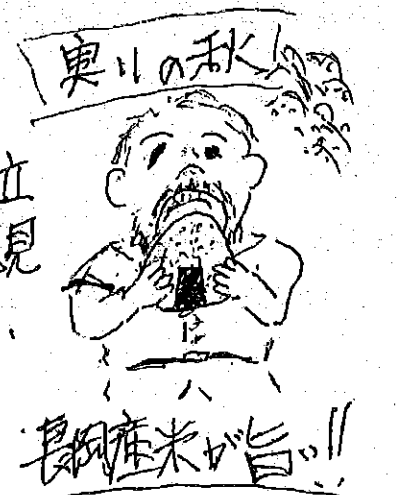 実りの秋!
立見
長岡産米が旨い!!